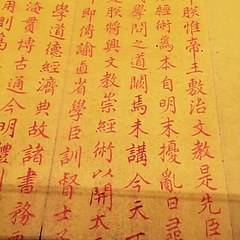 朕惟帝王敷治文教是先臣
經術為本自明末擾亂日尋
學問之道闕焉未講今天下
朕將興文教崇經術以開太
即傳諭直省學臣訓督士子
學道德經濟典故諸書務
淹貫博古通今明體則
用則為